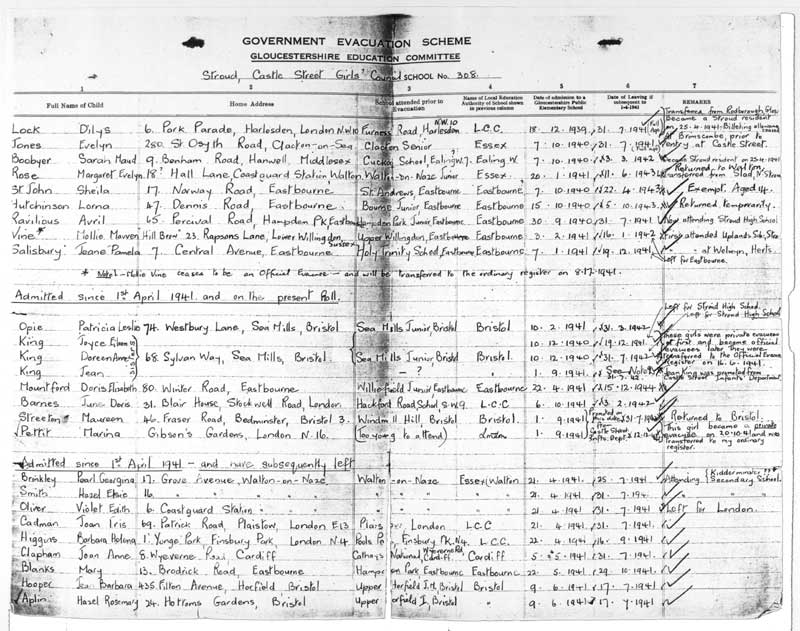 GOVERNMENT EVACUATION SCHEME
GLOUCESTERSHIRE EDUCATION COMMITTEE
Stroud, Castle Street Girls' Council SCHOOL No. 308.
1 2 3 4 5 6 7
Full Name of Child Home Address School attended prior to Evacuation Name of Local Education Authority of School shown in previous column Date of admission to a Gloucestershire Public Elementary School Date of Leaving if subsequent to 1-4-1941 REMARKS
Transferred from Rodborough, Glos.
Lock Dilys 6. Park Parade, Harlesden, London N.W.10 Furness Road, Harlesden N.W.10 L.C.C. 18. 12. 1939 31. 7. 1941 became a Stroud resident on 25.4.1941. Billeting allowance
Jones Evelyn 280. St Osyth Road, Clacton-on-Sea Clacton Senior Essex 7. 10. 1940 31. 7. At Brimscombe, prior to entry at Castle Street.
Boobyer Sarah Maud 9. Benham Road, Hanwell, Middlesex Cuckoo School, Ealing W.7. Ealing. W. 7. 10. 1940 3. 1942 Became Stroud resident on 25.4.1941
Rose Margaret Evelyn 18 Hall Lane, Coastguard Station Walton Walton-on-Naze Junior Essex 20. 1. 1941 11. 6. Returned to Walton. Transferred from Slad,
St John Sheila 17. Norway Road, Eastbourne St. Andrews, Eastbourne Eastbourne 7. 10. 1940 22. 4. Exempt. Aged 14.
Hutchinson Lorna 47. Dennis Road, Eastbourne Bourne Junior, Eastbourne Eastbourne 15. 10. 1940 5. 10. Returned temporarily.
Ravilious Avril 65. Percival Road, Hampden Pk Eastbourne Hampden Park Junior, Eastbourne Eastbourne 30. 9. 1940 31. 7. 1941 Now attending Stroud High School
Vine* Mollie Maureen Hill Brow 23. Rapsons Lane, Lower Willingdon, Sussex Upper Willingdon, Eastbourne Eastbourne 3. 2. 1941 16. 1. 1942 First attended Uplands Sch.
Salisbury Joane Pamela 7. Central Avenue, Eastbourne Holy Trinity School, Eastbourne Eastbourne 7. 1. 1941 19. 12. 1941 " at Welwyn, Herts. Left for Eastbourne.
* Note - Mollie Vine ceases to be an Official Evacuee - and will be transferred to the ordinary register on 8.12.1941.
Admitted since 1st April 1941. and on the present Roll.
Left for Stroud High School.
Opie Patricia Leslie 74. Westbury Lane, Sea Mills, Bristol Sea Mills Junior, Bristol Bristol 10. 2. 1941 31. 3. 1942 Left for Stroud High School
King Joyce Eileen 10. 12. 1940 19. 12. 1941 These girls were private evacuees
King Doreen Anne 68. Sylvan Way, Sea Mills, Bristol. Sea Mills Junior, Bristol Bristol. 10. 12. 1940 31. 7. 1942 at first and became official evacuees later. They were transferred to the Official Evacuee
King Jean - ? 1. 9. 1941 See Note register on 16. 6. 1941. Jean King was promoted from
Mountford Doris Elizabeth 80. Winter Road, Eastbourne Willingfield Junior Eastbourne Eastbourne 22. 4. 1941 15. 12. 1944 Castle School Infants' Department.
Barnes June Doris 31. Blair House, Stockwell Road, London. Hackford Road School, S.W.9. L.C.C 6. 10. 1941 3. 2. 1942
Streeton Maureen 46. Fraser Road, Bedminster, Bristol 3. Windmill Hill, Bristol Bristol 1. 9. 1941 31. 7. Returned to Bristol.
Pettit Marina Gibson's Gardens, London N. 16. (too young to attend) London 1. 9. 1941 This girl became a private evacuee on 20.10.41 and was transferred to my ordinary register.
Admitted since 1st April 1941 - and have subsequently left
Brinkley Pearl Georgina 17. Grove Avenue, Walton-on-Naze Walton-on-Naze Essex (Walton 21. 4. 1941. 25. 7. 1941 Attending Kidderminster Secondary School.
Smith Hazel Elsie 16. " " " " " 21. 4. 1941 31. 7. " "
Oliver Violet Edith 6. Coastguard Station " " " " 21. 4. 1941 31. 7. 1941. Left for London.
Cadman Joan Iris 69. Patrick Road, Plaistow, London E13 London L.C.C 21. 4. 1941 31. 7. 1941.
Higgins Barbara Helena 1. Yonge Park, Finsbury Park, London N.4 Finsbury Pk. N.4. L.C.C. 22. 4. 1941 16. 9. 1941
Clapham Joan Anne 8. Wyeverne Road, Cardiff Cathays National Wyeverne Rd. Cardiff. Cardiff 5. 5. 1941 31. 7. 1941
Blanks Mary 13. Brodrick Road, Eastbourne Park Eastbourne Eastbourne 22. 5. 1941 29. 10. 1941
Hooper Barbara 435. Filton Avenue, Horfield, Bristol Upper Horfield Bristol Bristol 9. 6. 1941 17. 7. 1941
Aplin Hazel Rosemary 24. Hottoms Gardens, Bristol Upper Horfield I, Bristol " 9. 6. 1941 17. 7. 1941